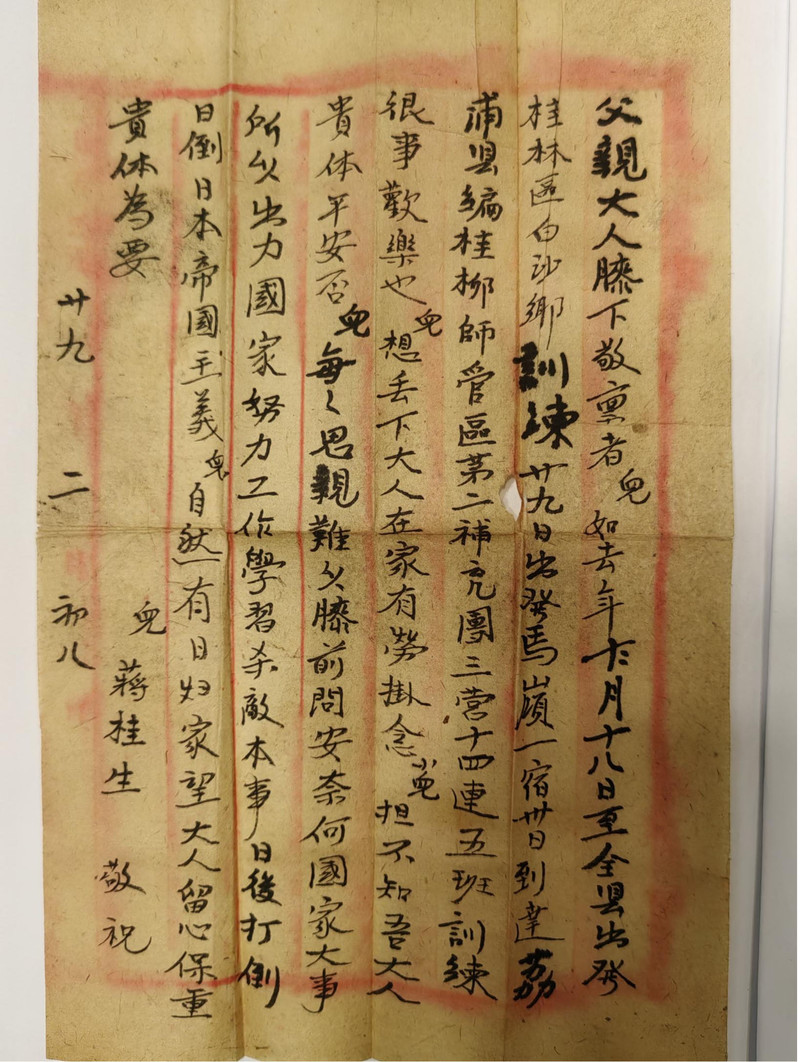 父親大人膝下敬禀者兒如去年十二月十八日至全县出發
桂林區白沙鄉訓練廿九日出發馬嶺一宿卅日到達荔
浦县編桂柳師管區第二補充團三营十四連五班訓練
很事歡樂也兒想丢下大人在家有勞掛念小兒担不知吾大人
貴体平安否兒每々思親難以膝前問安奈何國家大事
所以出力國家努力工作學習杀敵本事日後打倒
日倒日本帝國主義兒自然有日归家望大人留心保重
貴体為要
兒蔣桂生敬祝
廿九 二 初八